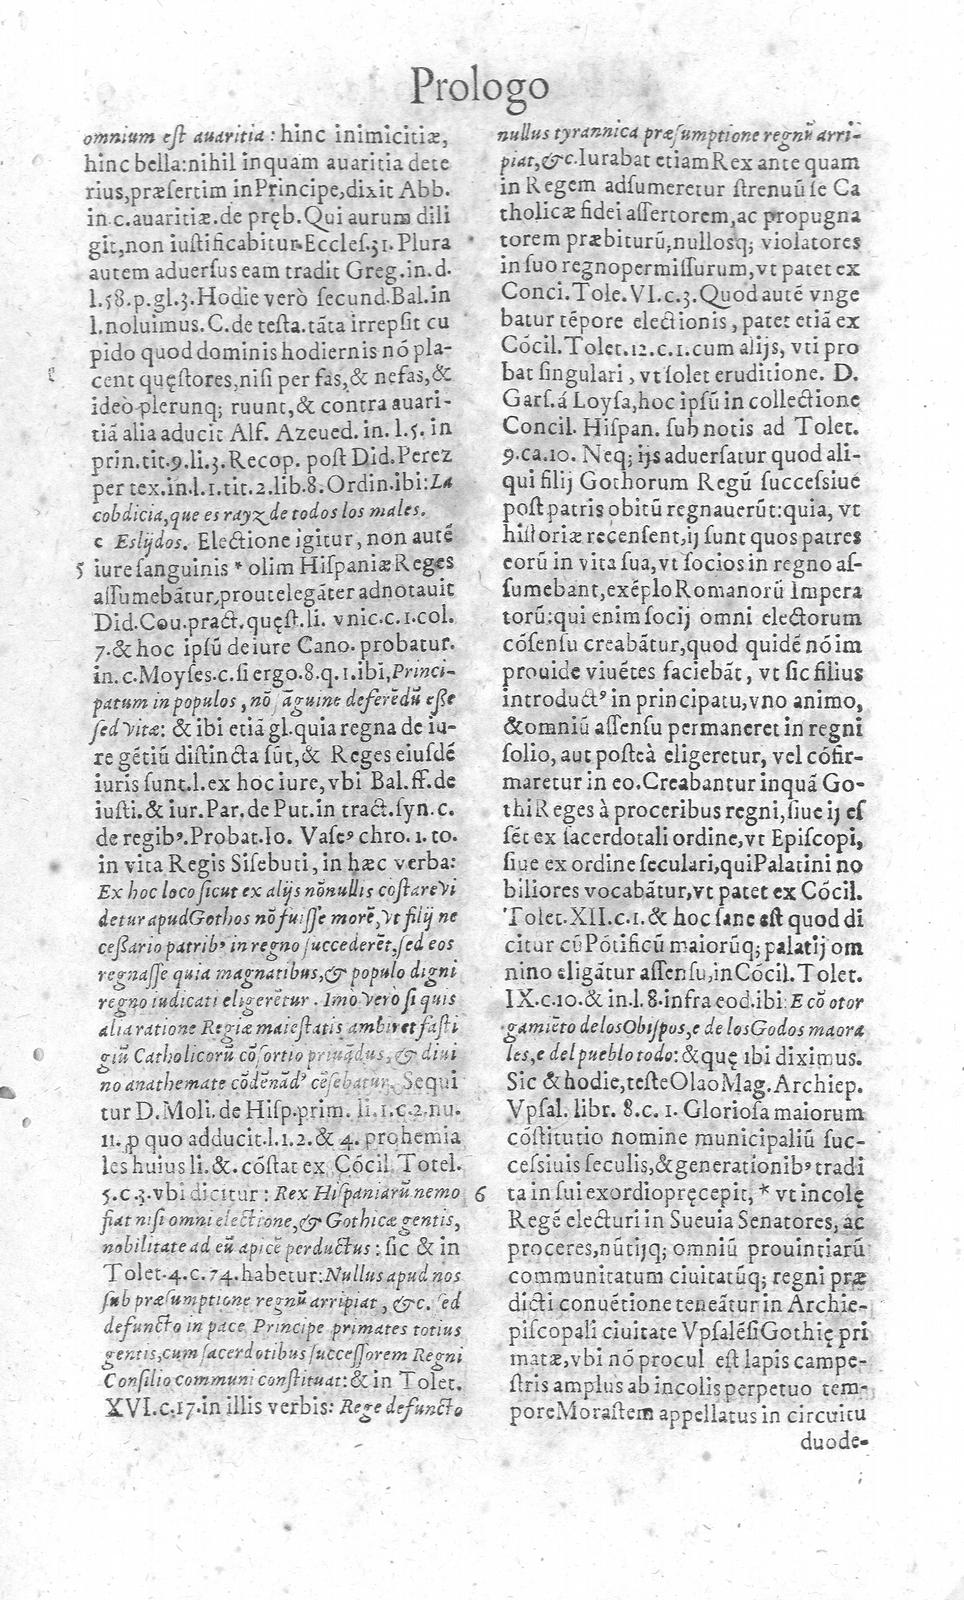 Prologo
omnium est auaritia : hinc inimicitiæ,
hinc bella: nihil inquam auaritia dete
rius, præsertim in Principe, dixit Abb.
in c. auaritiæ. de pręb. Qui aurum dili
git, non iustificabitur. Eccles. 31. Plura
autem aduersus eam tradit Greg. in. d.
l. 58. p. gl. 3. Hodie verò secund. Bal. in
l. noluimus. C. de testa. tāta irrepsit cu
pido quod dominis hodiernis nō pla-
cent quęstores, nisi per fas, & nefas, &
ideò plerunq; ruunt, & contra auari-
tiā alia aducit Alf. Azeued. in. l. 5. in
prin. tit. 9. li. 3. Recop. post Did. Perez
per tex. in. l. 1. tit. 2. lib. 8. Ordin. ibi: La
cobdicia, que es rayz de todos los males.
c Eslijdos. Electione igitur, non autē
5 iure sanguinis * olim Hispaniæ Reges
assumebātur, prout elegāter adnotauit
Did. Cou. pract. quęst. li. vnic. c. 1. col.
7. & hoc ipsū de iure Cano. probatur.
in. c. Moyses. c. si ergo. 8. q. 1. ibi, Princi-
patum in populos, nō sāguine deferēdū esse
sed vitæ: & ibi etiā gl. quia regna de iu-
re gētiū distincta sūt, & Reges eiusdē
iuris sunt. l. ex hoc iure, vbi Bal. ff. de
iusti. & iur. Par. de Put. in tract. syn. c.
de regibꝰ. Probat. Io. Vasęꝰ chro. 1. to.
in vita Regis Sisebuti, in hæc verba:
Ex hoc loco sicut ex alijs nōnullis cōstare vi
detur apud Gothos nō fuisse morē, vt filij ne
cessario patribꝰ in regno succederēt, sed eos
regnasse quia magnatibus, & populo digni
regno iudicati eligerētur. Imò verò si quis
alia ratione Regiæ maiestatis ambiret fasti
giū Catholicorū cōsortio priuādus, & diui
no anathemate cōdēnādꝰ cēsebatur. Sequi
tur D. Moli. de Hisp. prim. li. 1. c. 2. nu.
11. ꝓ quo adducit. l. 1. 2. & 4. prohemia
les huius li. &. cōstat ex Cōcil. Totel.
5. c. 3. vbi dicitur : Rex Hispaniarū nemo
fiat nisi omni electione, & Gothicæ gentis,
nobilitate ad eū apicē perductus : sic & in
Tolet. 4. c. 74. habetur: Nullus apud nos
sub præsumptione regnū arripiat, &c. sed
defuncto in pace Principe primates totius
gentis, cum sacerdotibus successorem Regni
Consilio communi constituat: & in Tolet.
XVI. c. 17. in illis verbis: Rege defuncto
nullus tyrannica præsumptione regnū arri-
piat, &c. Iurabat etiam Rex ante quam
in Regem adsumeretur strenuū se Ca
tholicæ fidei assertorem, ac propugna
torem præbiturū, nullosq; violatores
in suo regno permissurum, vt patet ex
Conci. Tole. VI. c. 3. Quod autē vnge
batur tēpore electionis, patet etiā ex
Cōcil. Tolet. 12. c. 1. cum alijs, vti pro
bat singulari, vt solet eruditione. D.
Gars. á Loysa, hoc ipsū in collectione
Concil. Hispan. sub notis ad Tolet.
9. ca. 10. Neq; ijs aduersatur quod ali-
qui filij Gothorum Regū successiuē
post patris obitū regnauerūt: quia, vt
historiæ recensent, ij sunt quos patres
eorū in vita sua, vt socios in regno as-
sumebant, exēplo Romanorū Impera
torū: qui enim socij omni electorum
cōsensu creabātur, quod quidē nō im
prouide viuētes faciebāt, vt sic filius
introductꝰ in principatu, vno animo,
& omniū assensu permaneret in regni
solio, aut posteà eligeretur, vel cōfir-
maretur in eo. Creabantur inquā Go-
thi Reges à proceribus regni, siue ij es
sēt ex sacerdotali ordine, vt Episcopi,
siue ex ordine seculari, qui Palatini no
biliores vocabātur, vt patet ex Cōcil.
Tolet. XII. c. 1. & hoc sane est quod di
citur cū Pōtificū maiorūq; palatij om
nino eligātur assensu, in Cōcil. Tolet.
IX. c. 10. & in. l. 8. infra eod. ibi: E cō otor
gamiēto de los Obispos, e de los Godos maora
les, e del pueblo todo: & quę ibi diximus.
Sic & hodie, teste Olao Mag. Archiep.
Vpsal. libr. 8. c. 1. Gloriosa maiorum
cōstitutio nomine municipaliū suc-
cessiuis seculis, & generationibꝰ tradi
6 ta in sui exordio pręcepit, * vt incolę
Regē electuri in Sueuia Senatores, ac
proceres, nūtijq; omniū prouintiarū
communitatum ciuitatūq; regni præ
dicti conuētione teneātur in Archie-
piscopali ciuitate Vpsalēsi Gothię pri
matæ, vbi nō procul est lapis campe-
stris amplus ab incolis perpetuo tem-
pore Morastem appellatus in circuitu
duode-